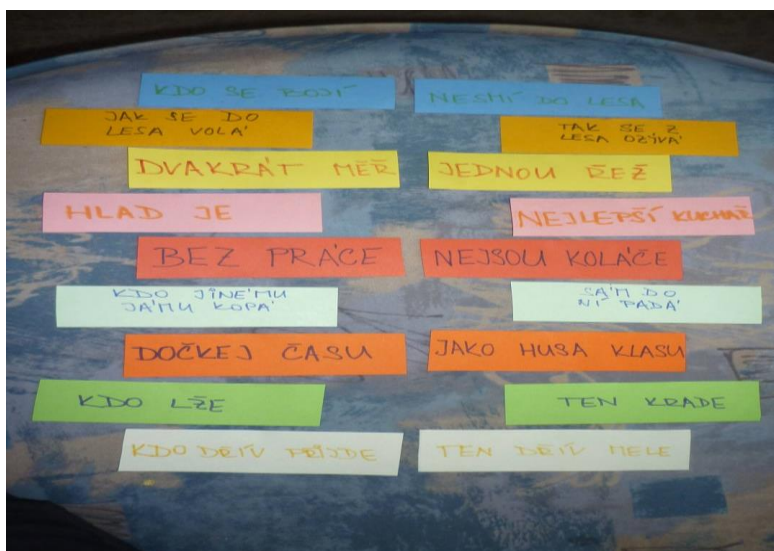 KDO SE BOJÍ
NESMÍ DO LESA
JAK SE DO
LESA VOLÁ
TAK SE Z
LESA OZÝVÁ
DVAKRÁT MĚŘ
JEDNOU ŘEŽ
HLAD JE
NEJLEPŠÍ KUCHAŘ
BEZ PRÁCE
NEJSOU KOLÁČE
KDO JINÉMU
JÁMU KOPÁ
SÁM DO
NÍ PADÁ
DOČKEJ ČASU
JAKO HUSA KLASU
KDO LŽE
TEN KRADE
KDO DŘÍV PŘIJDE
TEN DŘÍV MELE